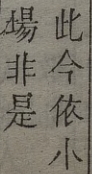 此今依小
場非是